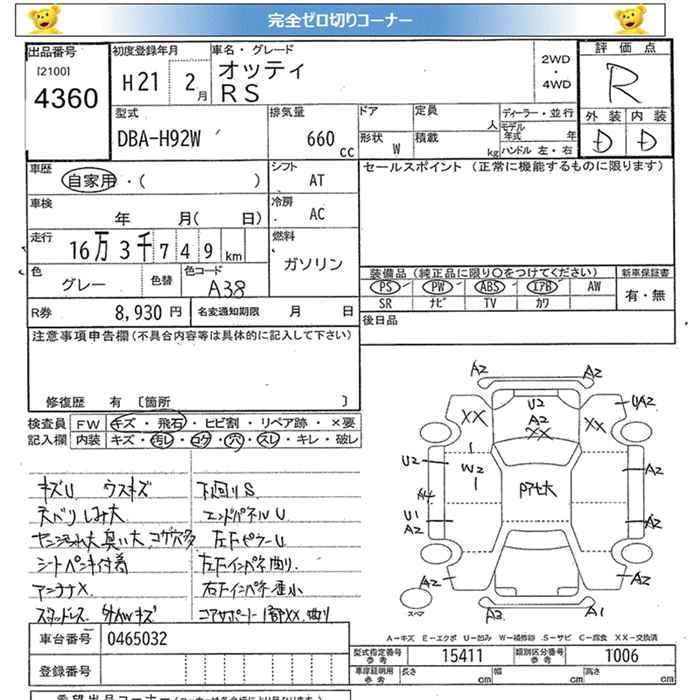 完全ゼロ切りコーナー
出品番号
[2100]
4360
初度登録年月
H21 2月
車名・グレード
オッティ
RS
2WD
・
4WD
評価点
R
外装 内装
D D
型式
DBA-H92W
排気量
660 cc
ドア
定員
人
形状
W
積載
kg
ディーラー・並行
モデル年式 年
ハンドル 左・右
車歴
自家用・( )
シフト
AT
セールスポイント (正常に機能するものに限ります)
車検
年 月( 日)
冷房
AC
走行
16万3千749km
燃料
ガソリン
色
グレー
色替
色コード
A38
装備品(純正品に限り○をつけてください)
PS PW ABS エアB AW
SR ナビ TV カワ
新車保証書
有・無
R券
8,930円
名変通知期限 月 日
後日品
注意事項申告欄(不具合内容等は具体的に記入して下さい)
修復歴 有 〔箇所 〕
検査員記入欄
FW キズ・飛石・ヒビ割・リペア跡・×要
内装 キズ・汚レ・コゲ・穴・スレ・キレ・破レ
キズU ウスキズ
天ベリしみ大
ヤニ汚れ大 臭い大 コゲ穴多
シートペンキ付着
アンテナX
スタッドレス 外AWキズ
下回りS
エンドパネルU
左Fピラー U
左Fインパネ曲り
右Fインパネ歪小
コアサポート一部XX 曲り
A2 A2
A2 UA2
XX U2 XX
A2
XX
U2 W2 A2
A4 Pア七大
U1 A2
A2
A2 A2
スペア A3 A1
A－キズ E－エクボ U－凹み W－補修跡 S－サビ C－腐食 XX－交換済
車台番号
0465032
登録番号
型式指定番号 参考
15411
類別区分番号 参考
1006
車庫証明用 参考
長さ
幅
高さ
希望出品コーナー